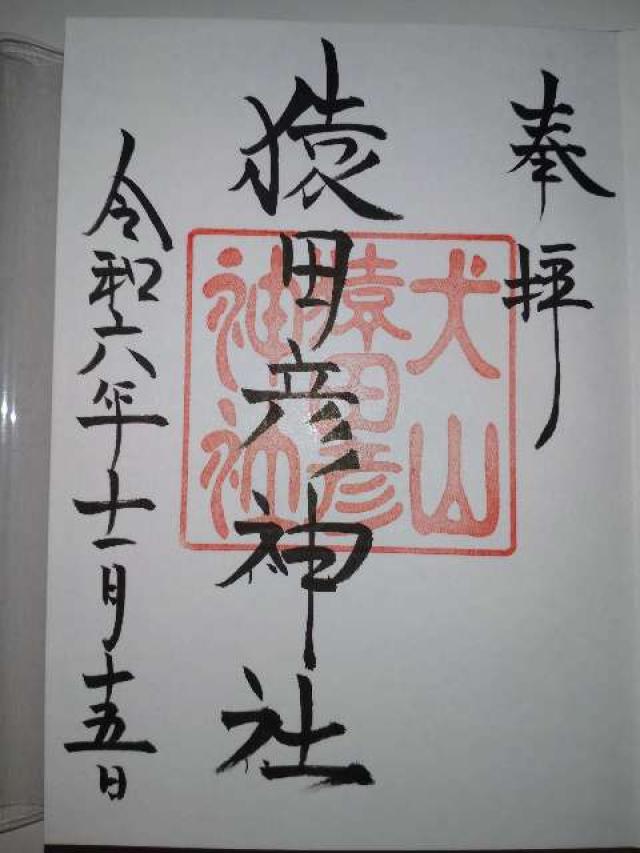 奉拝
犬山
猿田彦
神社
猿田彦神社
令和六年十一月十五日